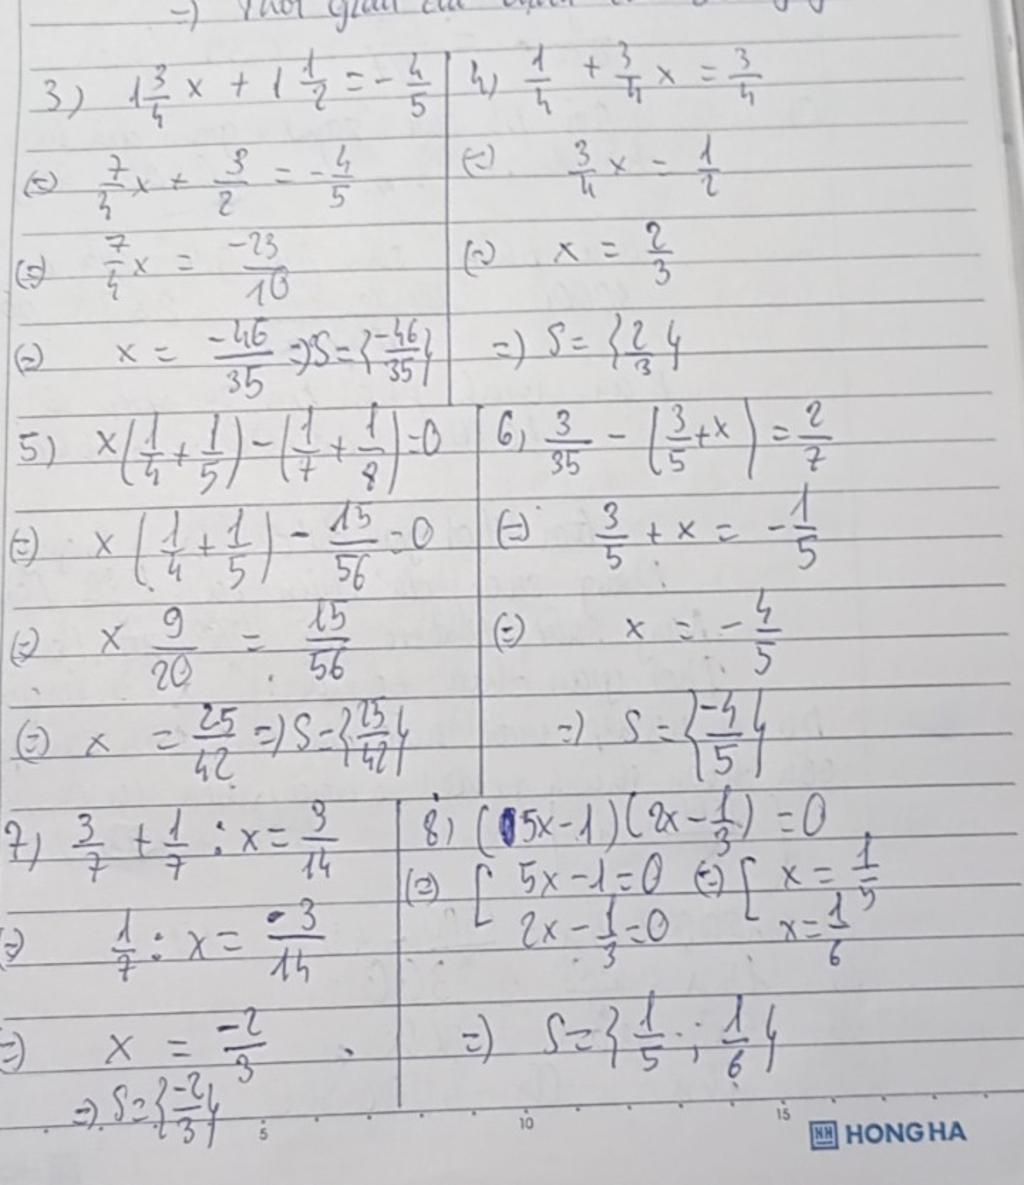 =) Thời gian
3) 1 3/4 x + 1 1/2 = - 4/5
(=) 7/4 x + 3/2 = - 4/5
(=) 7/4 x = -23/10
(=) x = -46/35 => S = {-46/35}
4) 1/4 + 3/4 x = 3/4
(=) 3/4 x = 1/2
(=) x = 2/3
=) S = {2/3}
5) x(1/4 + 1/5) - (1/7 + 1/8) = 0
(=) x (1/4 + 1/5) - 15/56 = 0
(=) x 9/20 = 15/56
(=) x = 25/42 =) S = {25/42}
6) 3/35 - (3/5 + x) = 2/7
(=) 3/5 + x = - 1/5
(=) x = - 4/5
=) S = {-4/5}
7) 3/7 + 1/7 : x = 3/14
=) 1/7 : x = -3/14
=) x = -2/3
=) S = {-2/3}
8) (5x - 1)(2x - 1/3) = 0
(=) [ 5x - 1 = 0 (=) [ x = 1/5
2x - 1/3 = 0 x = 1/6
=) S = {1/5 ; 1/6}
5 10 15
HONG HA